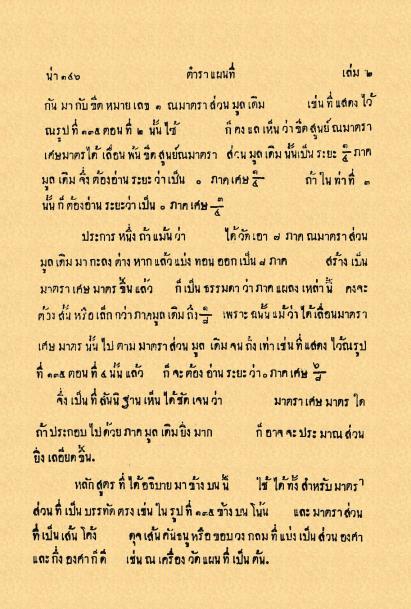 น่า ๑๙๖ ตำราแผนที่ เล่ม ๒
กัน มา กับ ขีด หมาย เลข ๑ ณมาตรา ส่วน มูล เดิม เช่น ที่ แสดง ไว้
ณรูป ที่ ๑๓๕ ตอน ที่ ๒ นั้น ไซ้ ก็ คง แล เห็น ว่า ขีด สูนย์ ณมาตรา
เศษมาตร ได้ เลื่อน พ้น ขีด สูนย์ณมาตรา ส่วน มูล เดิม นั้นเป็น ระยะ ๑/๔ ภาค
มูล เดิม จึ่ง ต้องอ่าน ระยะ ว่า เป็น ๐ ภาค เศษ ๑/๔ ถ้า ใน ท่า ที่ ๓
นั้น ก็ ต้องอ่าน ระยะว่า เป็น ๐ ภาค เศษ ๓/๔
ประการ หนึ่ง ถ้า แม้น ว่า ได้ วัด เอา ๗ ภาค ณมาตรา ส่วน
มูล เดิม มา กะลง ต่าง หาก แล้ว แบ่ง ทอน ออก เป็น ๘ ภาค สร้าง เป็น
มาตรา เศษ มาตร ขึ้น แล้ว ก็ เป็น ธรรมดา ว่า ภาค แผลง เหล่า นี้ คงจะ
ต้อง สั้น หรือ เล็ก กว่า ภาคมูล เดิม ถึง ๑/๘ เพราะ ฉนั้น แม้ ว่า ได้ เลื่อนมาตรา
เศษ มาตร นั้น ไป ตาม มาตรา ส่วน มูล เดิม จน ถึง เท่า เช่น ที่ แสดง ไว้ณรูป
ที่ ๑๓๕ ตอน ที่ ๔ นั้น แล้ว ก็ จะ ต้อง อ่าน ระยะ ว่า ๐ ภาค เศษ ๖/๘
จึ่ง เป็น ที่ สันนิ ฐาน เห็น ได้ ชัด เจน ว่า มาตรา เศษ มาตร ใด
ถ้า ประกอบ ไป ด้วย ภาค มูล เดิม ยิ่ง มาก ก็ อาจ จะ ประ มาณ ส่วน
ยิ่ง เลอียด ขึ้น.
หลัก สูตร ที่ ได้ อธิบาย มา ข้าง บน นี้ ใช้ ได้ ทั้ง สำหรับ มาตรา
ส่วน ที่ เป็น บรรทัด ตรง เช่น ใน รูป ที่ ๑๓๕ ข้าง บน โน้น และ มาตรา ส่วน
ที่ เป็น เส้น โค้ง ดุจ เส้น คันธนู หรือ ขอบ วง กลม ที่ แบ่ง เป็น ส่วน องศา
และ กึ่ง องศา ก็ ดี เช่น ณ เครื่อง วัด แผน ที่ เป็น ต้น.